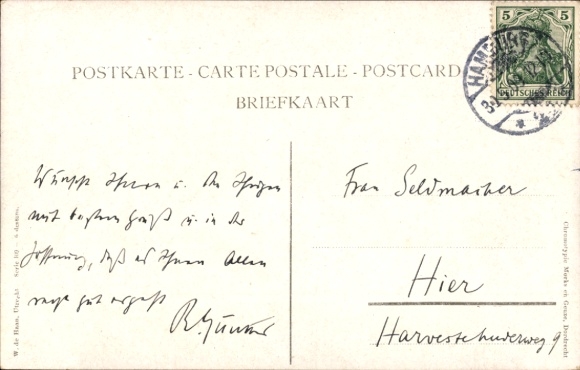 POSTKARTE - CARTE POSTALE - POSTCARD
BRIEFKAART
5 5
DEUTSCHES REICH
HAMBURG
Wünscht Ihnen u. den Ihrigen
mit bestem Gruß u. in der
Hoffnung, daß es Ihnen Allen
recht gut ergeht
R. Günther
Frau Seldmacher
Hier
Harvestehuderweg 9
W. de Haan, Utrecht Serie
Chromotypie Morks en Geuze, Dordrecht